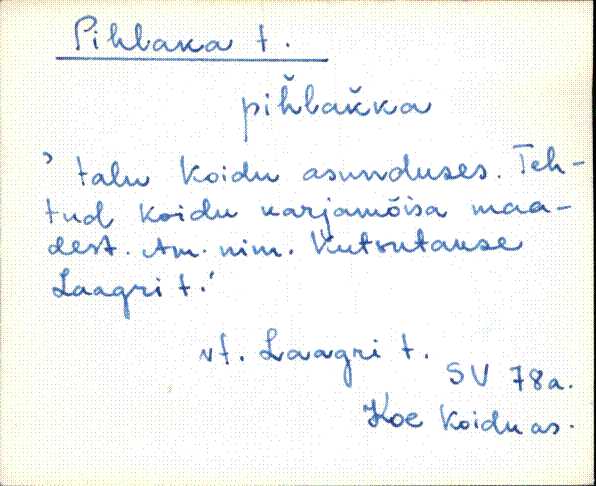 Pihlaka t.
piȟlaǩka
' talu Koidu asunduses. Teh-
tud Koidu karjamõisa maa-
dest. Am. nim. Kutsutakse
Laagri t.'
vt. Laagri t.
SV 78a.
Koe Koidu as.